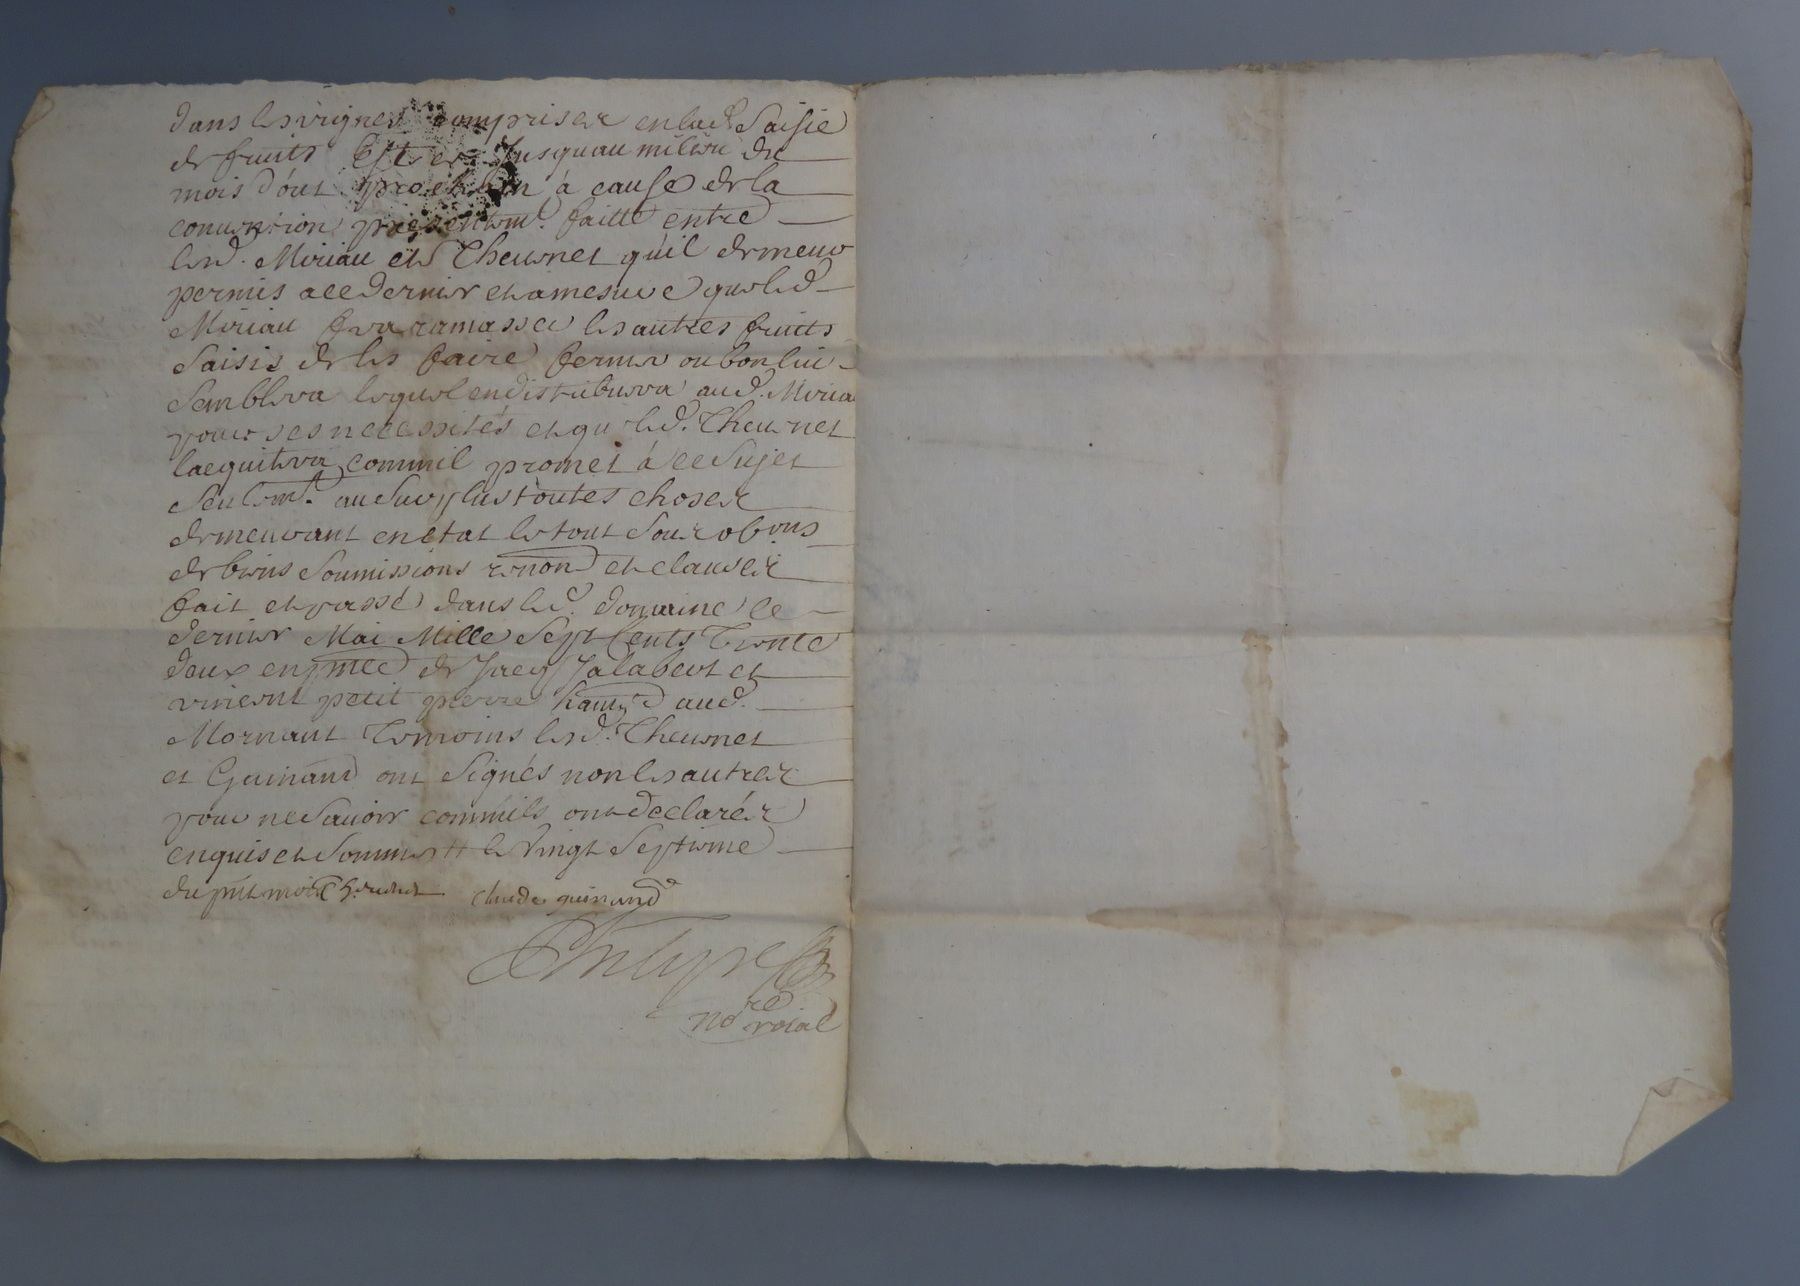 dans les vignes comprises en lad. Saisie
de fruits Jusquau milieu du
mois d'out prochain à cause de la
convention presentemt. faitte entre
lesd. Miriau et Theuenet quil demeure
permis a ce dernier et a mesure que led.
Miriau fera ramasser les autres fruits
Saisis de les faire fermer ou bon lui
Semblera lequel en distribuera aud. Miria
pour ses necessités et que led. Theuenet
lacquitera commil promet á ce Sujet
Seulemt. au Surplus toutes choses
demeurant en état le tout Sous obons
de biens Soumissions renon et clauses
fait et passé dans led. domaine le
dernier Mai Mille Sept Cents Trente
deux en pnce de Jacq Jalabert et
vincent petit pierre aud.
Mornant Temoins lesd. Theuenet
et Guinand ont Signés non les autres
pour ne Savoir commils ont declarés
enquis et Sommes le Vingt Septieme
du pnt mois Theuenet Claude guinand
Philype
nore roial